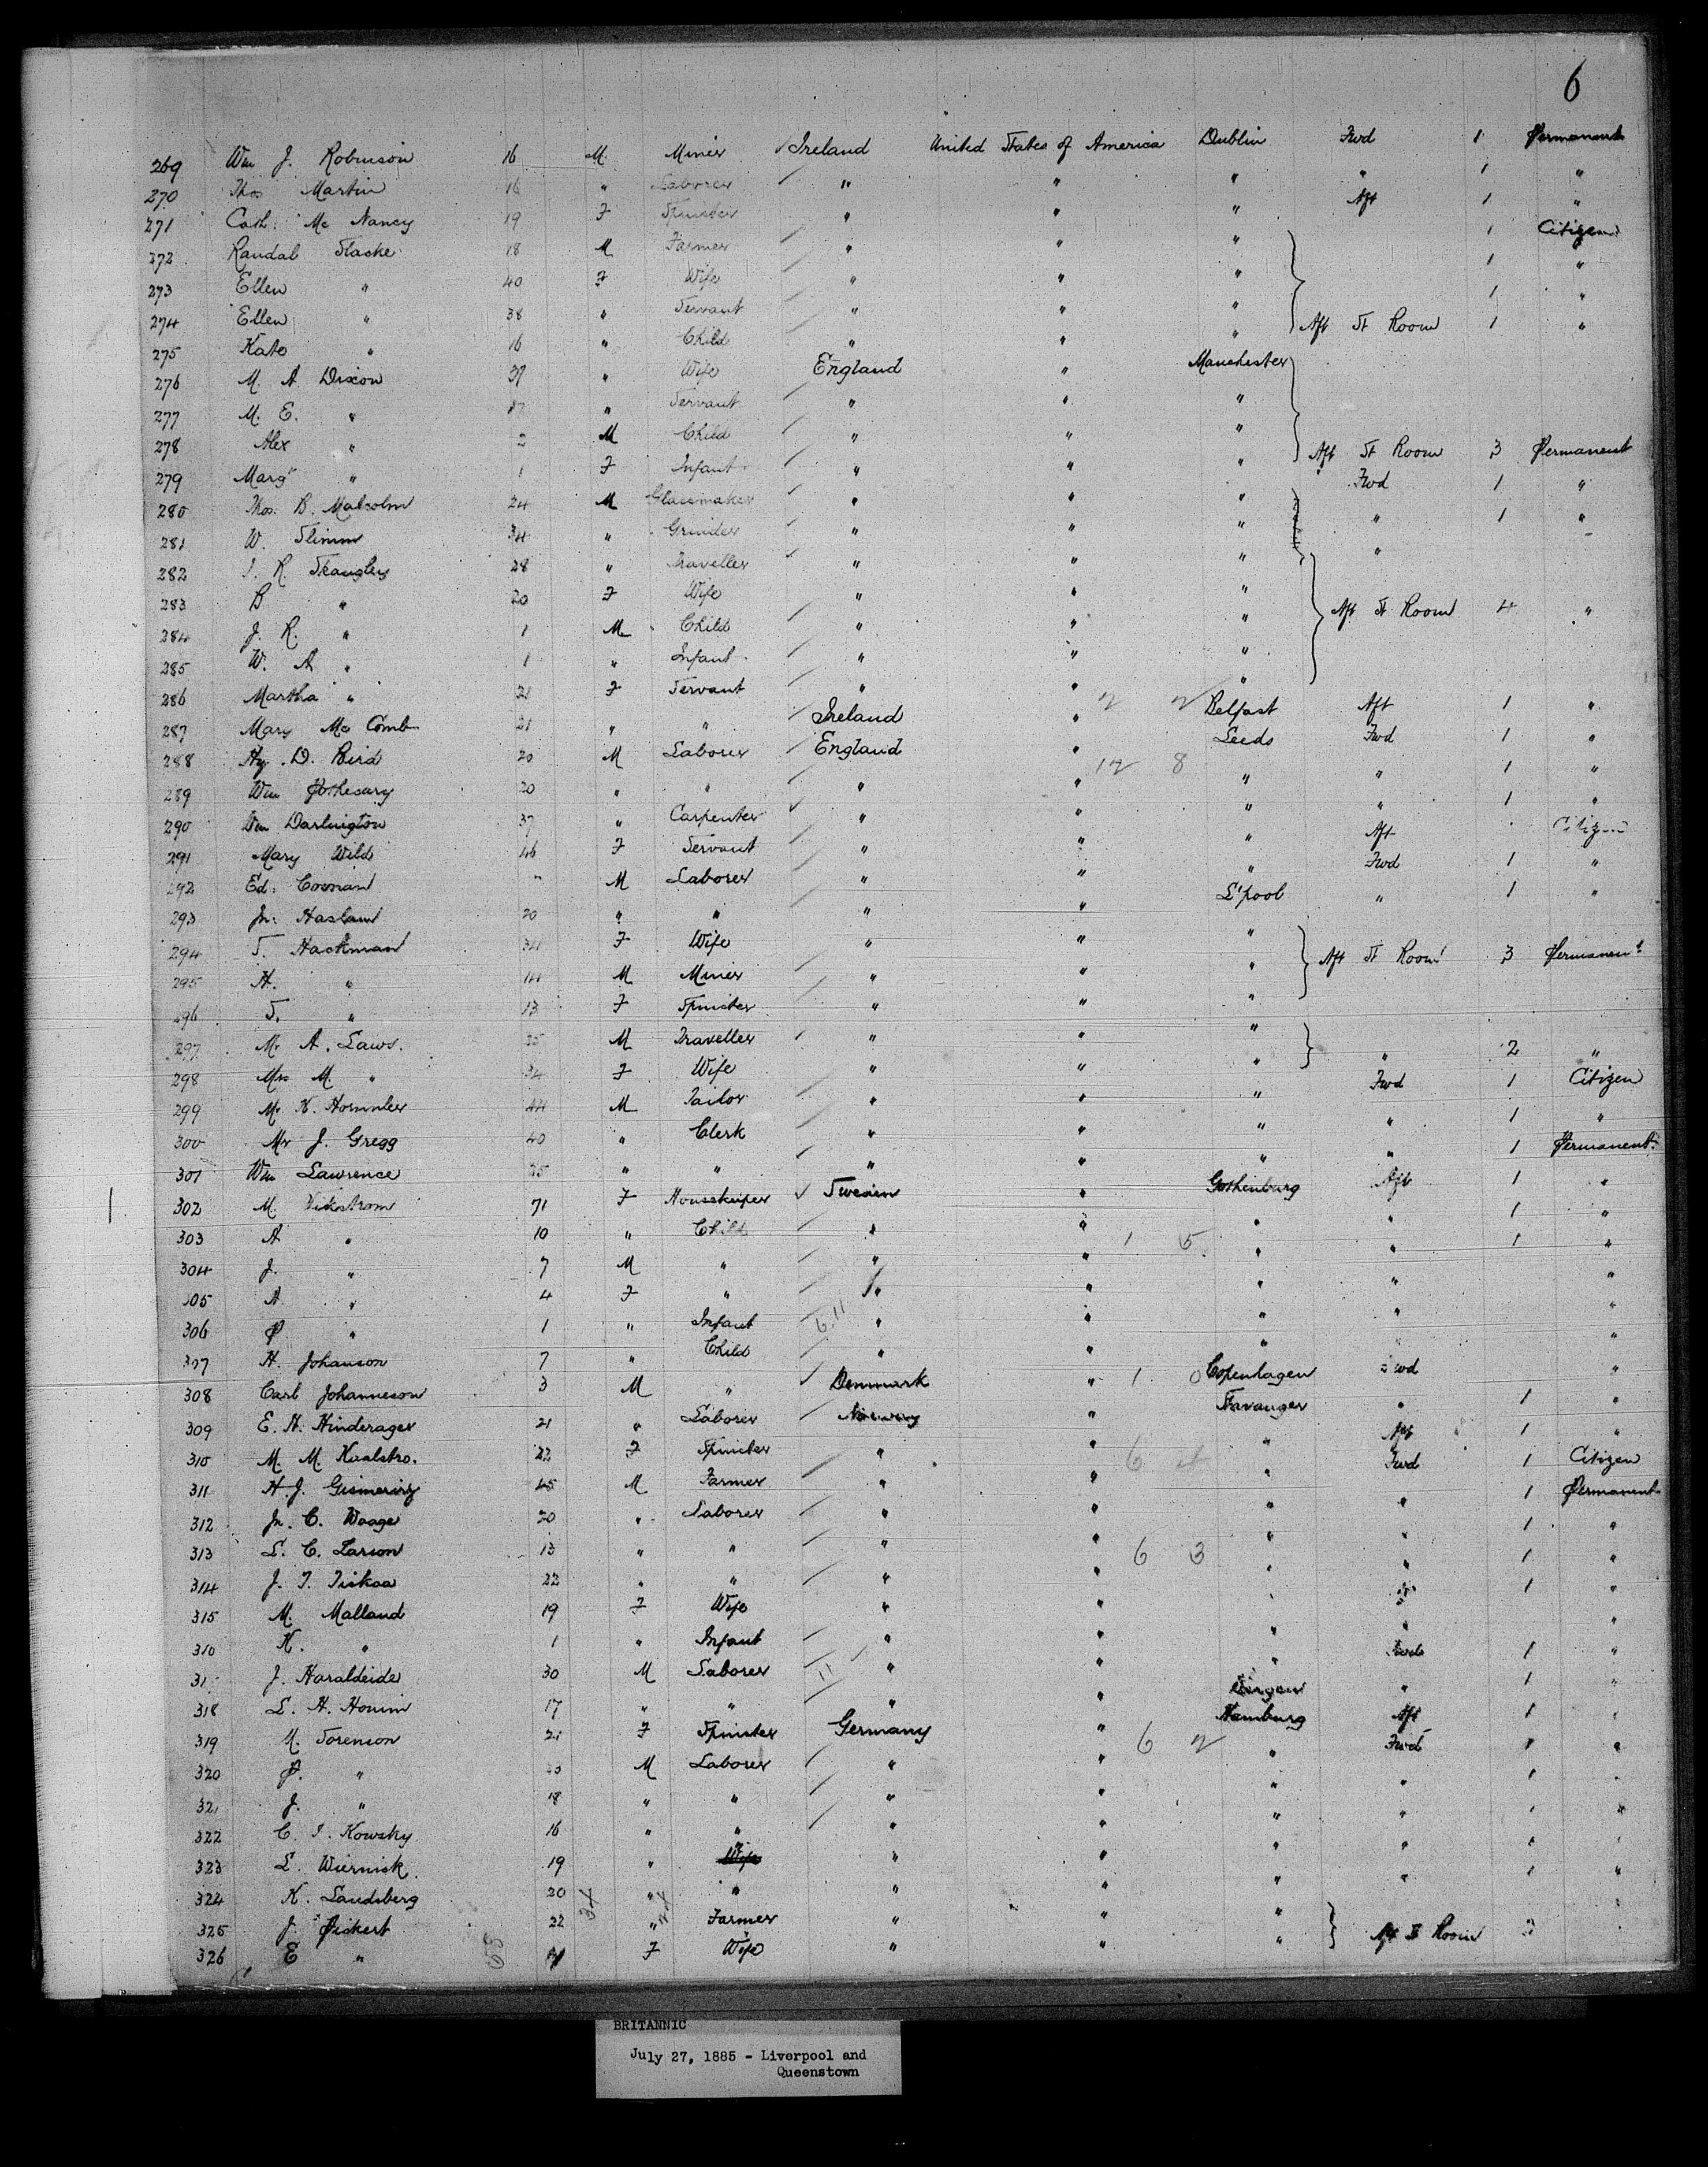 6
269 Wm J. Robinson 16 M. Miner Ireland United States of America Dublin Fwd 1 Permanent
270 Thos Martin 16 " Laborer " " " " 1 "
271 Cath: Mc Nancy 19 F Spinster " " " Aft 1 "
272 Randal Slacke 18 M Farmer " " " 1 Citizen
273 Ellen " 40 F Wife " " " 1 "
274 Ellen " 38 " Servant " " " 1 "
275 Kate " 16 " Child " " " Aft St Room 1 "
276 M. A. Dixon 37 " Wife England " Manchester
277 M. E. " 17 " Servant " " "
278 Alex " 2 M Child " " "
279 Margt " 1 F Infant " " " Aft St Room 3 Permanent
280 Thos. B. Malcolm 24 M Glassmaker " " " Fwd 1 "
281 W. Slimm 34 " Grinder " " " " 1 "
282 J. R. 28 " Traveller " " " "
283 B " 20 F Wife " " "
284 J. R. " 1 M Child " " " Aft St Room 4 "
285 W. A " 1 " Infant " " "
286 Martha " 21 F Servant " " "
287 Mary Mc Comb 21 " " Ireland " Belfast Aft 1 "
288 Hy. D. Bird 20 M Laborer England " Leeds Fwd 1 "
289 Wm Pothecary 20 " " " " 12 8 " " 1 "
290 Wm Darlington 37 " Carpenter " " " " 1 "
291 Mary Wild 46 F Servant " " " Aft Citizen
292 Ed: " M Laborer " " " Fwd 1 "
293 Jn: Haslam 20 " " " " L'pool " 1 "
294 T. Hackman 34 F Wife " " "
295 H. " M Miner " " " Aft St Room 3 Permanent
296 T. " 13 F Spinster " " "
297 Mr A. Laws. 35 M Traveller " " "
298 Mrs M. " 34 F Wife " " " " 2 "
299 Mr K. 44 M Tailor " " " Fwd 1 Citizen
300 Mr J. Gregg 40 " Clerk " " " " 1 "
301 Wm Lawrence 35 " " " " " " 1 Permanent
302 M. Vickstrom 71 F Housekeeper Sweden " Gothenburg Aft 1 "
303 A " 10 " Child " " " " 1 "
304 J. " 7 M " " " 1 5 " " 1 "
305 A " 4 F " " " " " "
306 P " 1 " Infant " " " " "
307 H. Johanson 7 " Child " " " "
308 Carl Johanneson 3 M " Denmark " 1 0 Copenhagen Fwd "
309 E. H. Hinderager 21 " Laborer Norway " Stavanger " 1 "
310 M. M. Kaalstro. 22 F Spinster " " 6 4 " Aft 1 "
311 H. J. Gismering 45 M Farmer " " " Fwd 1 Citizen
312 Jn. C. Waage 20 " Laborer " " " " 1 Permanent
313 L. C. Larson 13 " " " " 6 3 " " 1 "
314 J. T. Tiskaa 22 " " " " " " 1 "
315 M. Malland 19 F Wife " " " " 1 "
310 K. " 1 " Infant " " " " "
31 J. Haraldeide 30 M Laborer " " " Fwd 1 "
318 L. H. Honim 17 " " " " Bergen " 1 "
319 M. Sorenson 21 F Spinster Germany " Hamburg Aft 1 "
320 P. " M Laborer " " 6 2 " Fwd 1 "
321 J. " 18 " " " " " " 1
322 C. I. Kowsky 16 " " " " " " 1 "
323 L. Wiernick 19 " Wife " " " " 1
324 K. Landsberg 20 " " " " " " 1 "
325 J. Pickert 22 " Farmer " " "
326 E " F Wife " " " Aft S Room 2
BRITANNIC
July 27, 1885 - Liverpool and
Queenstown